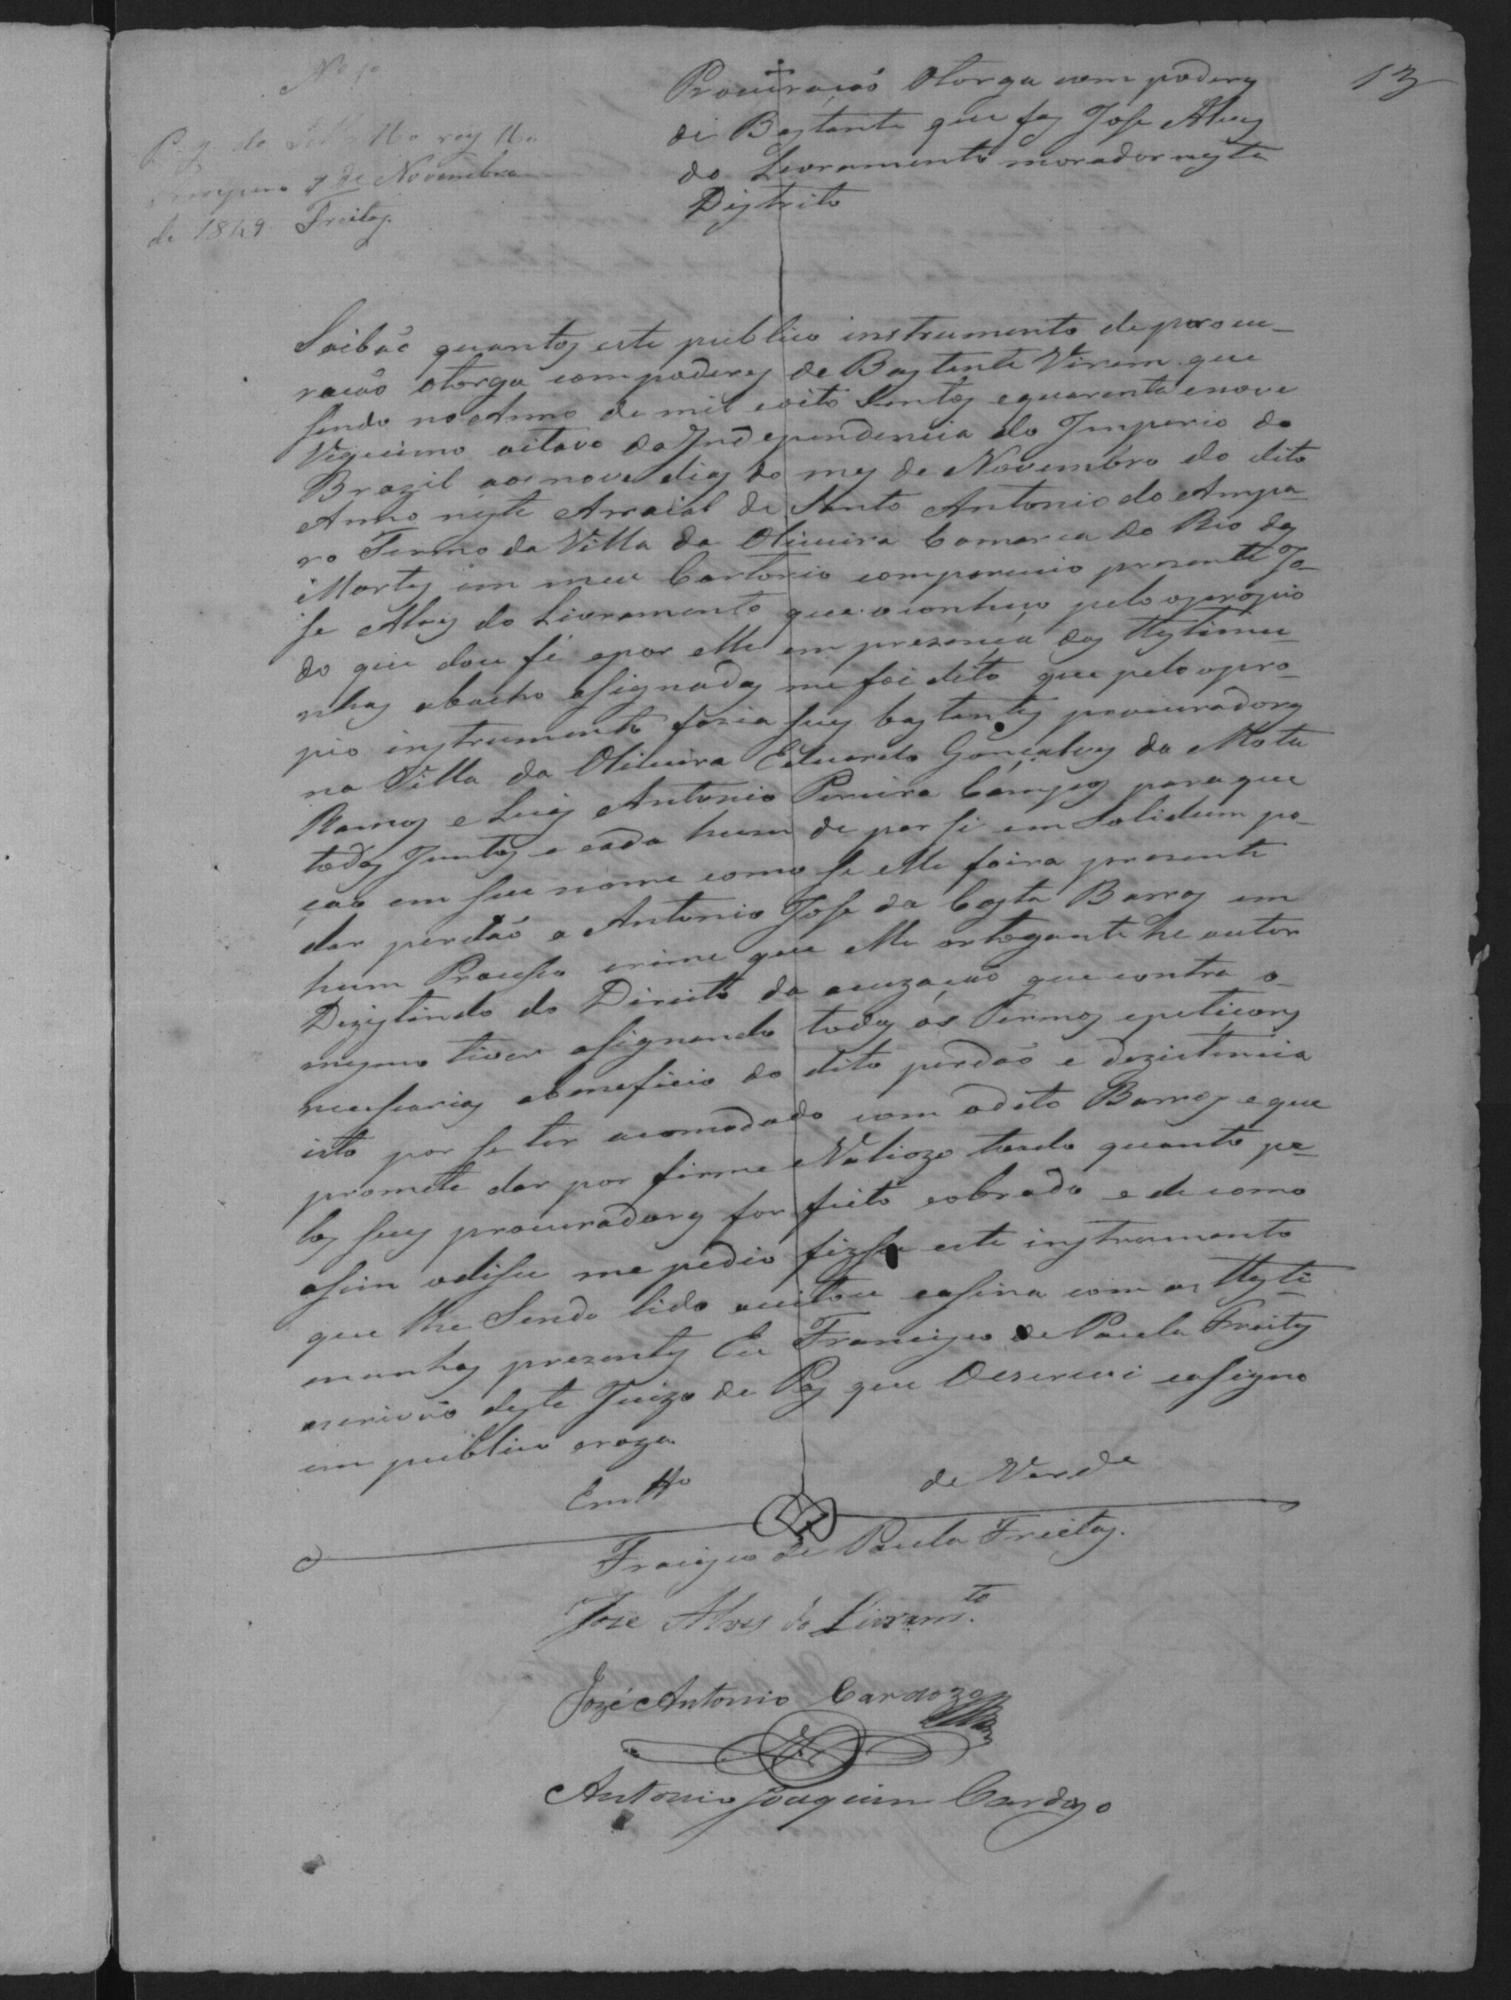 13
Nº 10
Pg. de Sello
7 de Novembro
de 1849 Freitas.
Procuração Otorga com poderes
de Bastante que faz Jose Alves
do Livramento morador neste
Distrito
Saibão quantos este publico instrumento de procu-
ração otorga com poderes de Bastante Virem que
sendo no Anno de mil eoito Sentos equarenta enove
Vigecimo oitavo da Independencia do Imperio do
Brazil aos nove dias do mes de Novembro do dito
Anno neste Arraial de Santo Antonio do Ampa-
ro Termo da Villa da Oliveira Comarca do Rio das
Mortes em meu Cartorio compareceio presente Jo-
se Alves do Livramento que o conheço pelo oproprio
do que dou fé epor elle em prezença das Testemu-
nhas abaicho asignadas me foi dito que pelo opro-
pio instrumento fazia seus bastantes procuradores
na Villa da Oliveira Eduardo Gonçalves da Mota
Ramos e Luis Antonio Pereira Campos para que
todos Juntos e cada hum de per si em Solidum po-
ção em seu nome como se elle foira presente
dar perdão a Antonio Jose da Costa Barros em
hum Processo crime que elle ortogante he autor
Dezistindo do Direito da acuzação que contra o
mesmo tiver asignando todos os Termos epetiçoes
necessarias abeneficio do dito perdão e dezistencia
isto por se ter acomodado com odito Barros e que
promete dar por firme eValiozo tendo quanto pe-
los seus procuradores for feito eobrado e de como
asim odisse me pedio fizesse este instrumento
que lhe Sendo lido aceitou easina com as Teste-
munhas prezentes Eu Francisco de Paula Freitas
escrivão deste Juizo de Paz que Oescrevi easigno
em publico eraza.
Em Tto de Verde
Francisco de Paula Freitas.
Joze Alves do Livramto.
Jozé Antonio Cardozo
Antonio Joaquim Cardozo